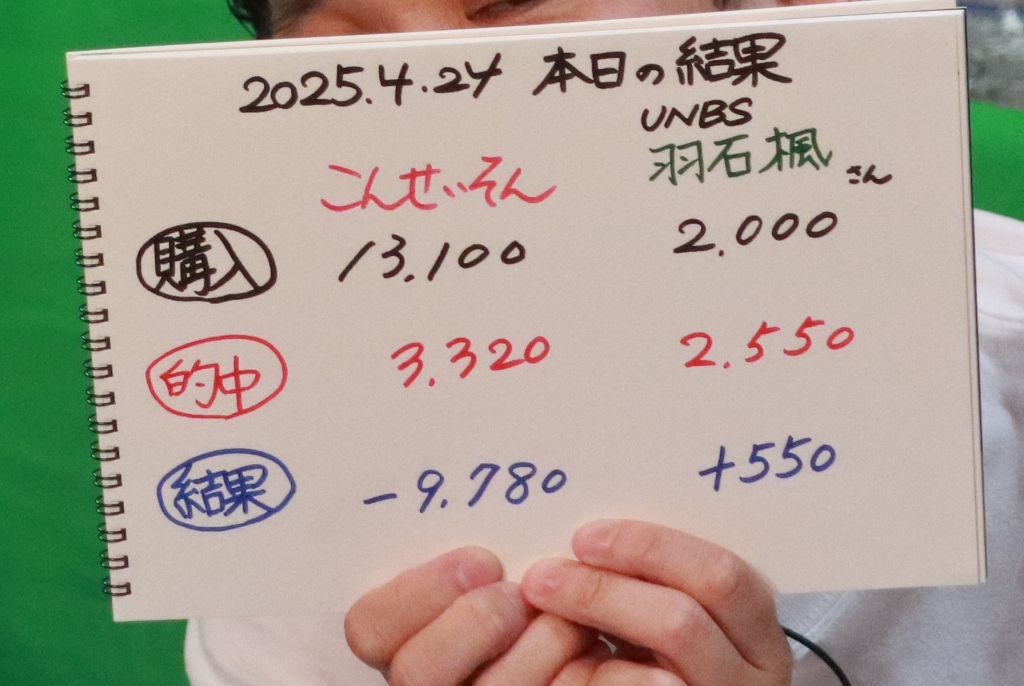 2025.4.24 本日の結果
UNBS
こんせいそん 羽石楓さん
購入 13.100 2.000
的中 3.320 2.550
結果 -9.780 +550